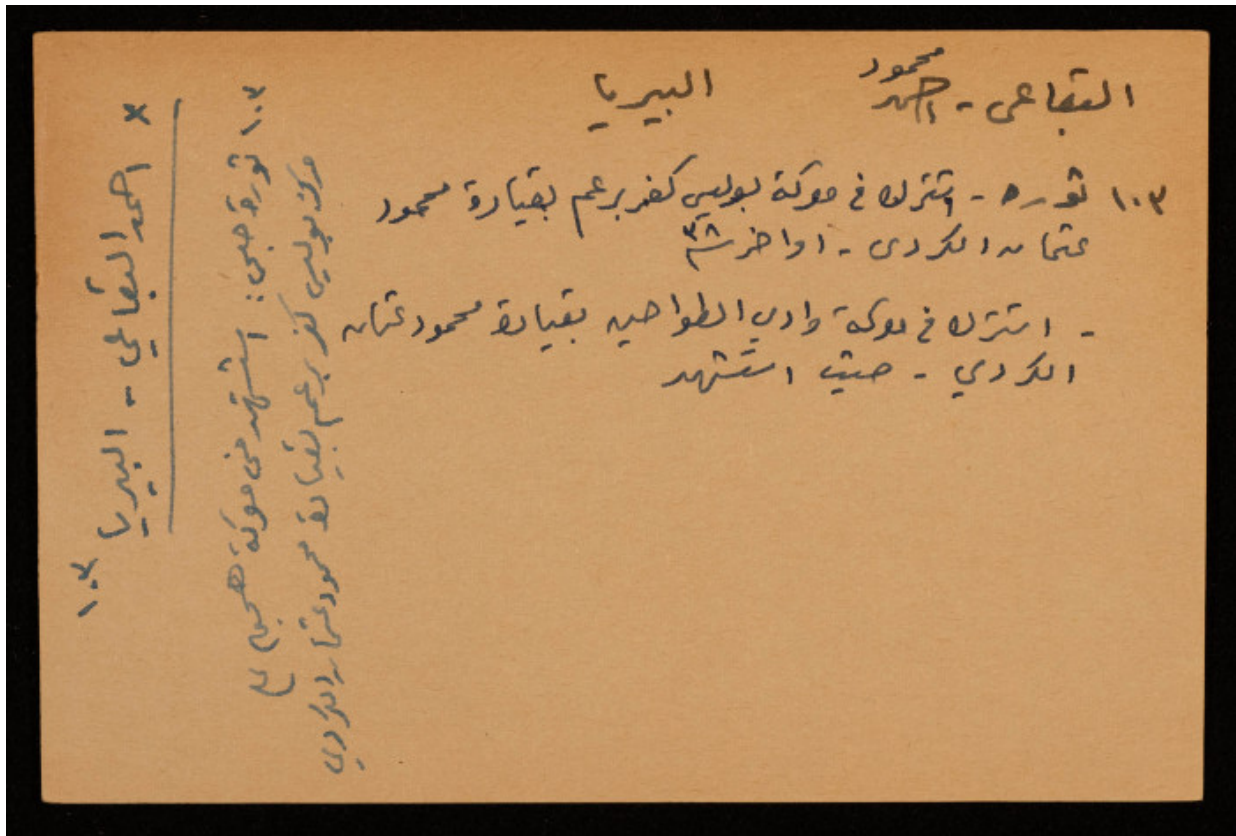 محمود
البقاعي - احمد البيريا
١٠٣ ثوره - اشترك في معركة بوليس كفر برعم بقيادة محمود
عثمان الكردي - اواخر سنة ٣٨
- اشترك في معركة وادي الطواحين بقيادة محمود عثمان
الكردي - حيث استشهد
* احمد البقاعي - البيريا
١٠٣
١٠٣ ثورة صبحي: استشهد في معركة هجوم على
مركز بوليس كفر برعم بقيادة محمود عثمان الكردي